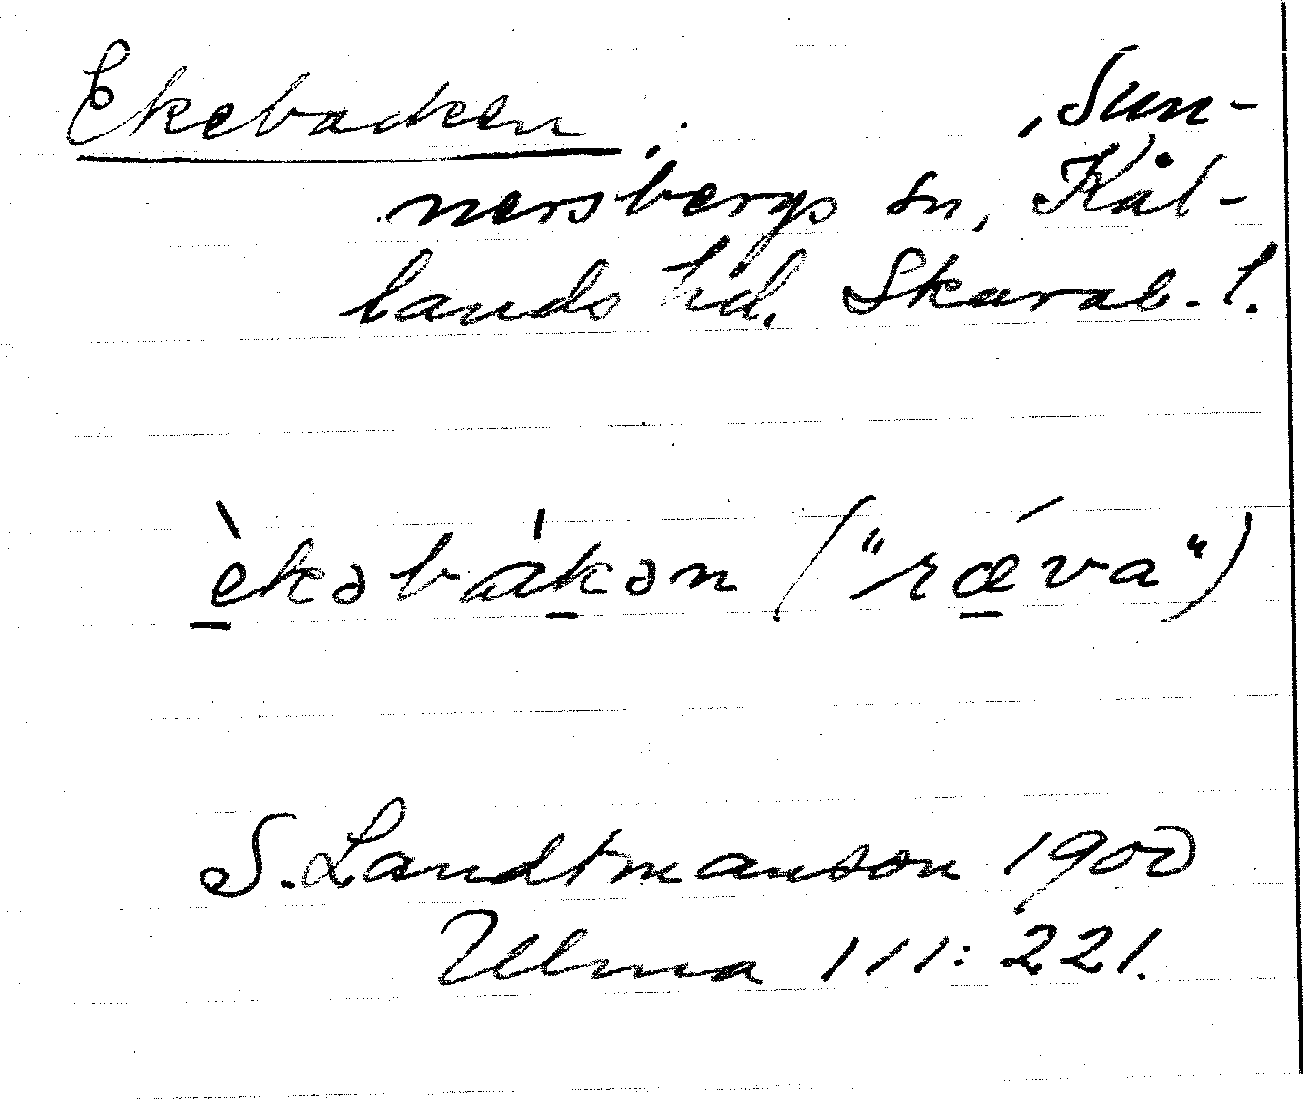 Ekebacken, Sun-
nersbergs sn, Kål-
lands hd. Skarab. l.
èkəbákən ("rǽva")
S. Landtmanson 1900
Ulma 111:221.